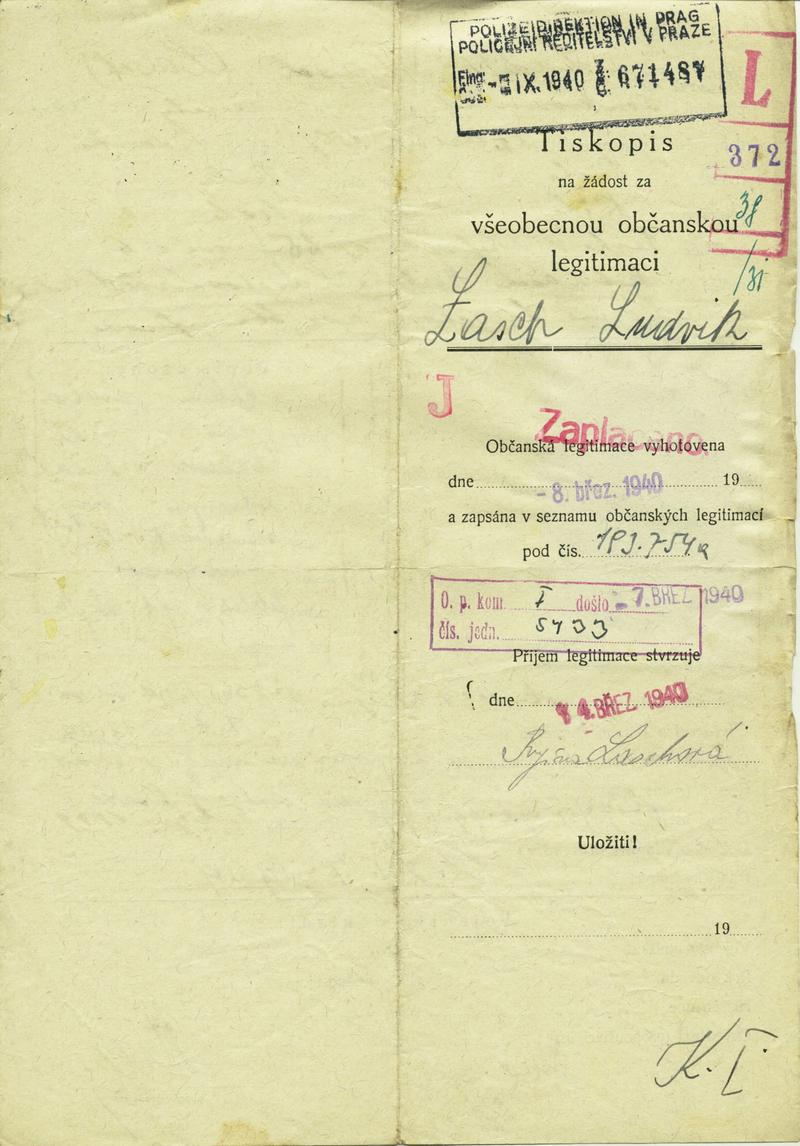 POLIZEIDIREKTION IN PRAG
POLICEJNÍ ŘEDITELSTVÍ V PRAZE
Eing.
IX.1940
671487
L
372
38
/31
Tiskopis
na žádost za
všeobecnou občanskou
legitimaci
Lasch Ludvik
J
Zaplaceno.
Občanská legitimace vyhotovena
dne - 8. břez. 1940 19
a zapsána v seznamu občanských legitimací
pod čís. 193.754
O. p. kom. I došlo - 7. BŘEZ 1940
čís. jedn. 5433
Příjem legitimace stvrzuje
dne 14. BŘEZ 1940
Laschová
Uložiti!
19
K. I.